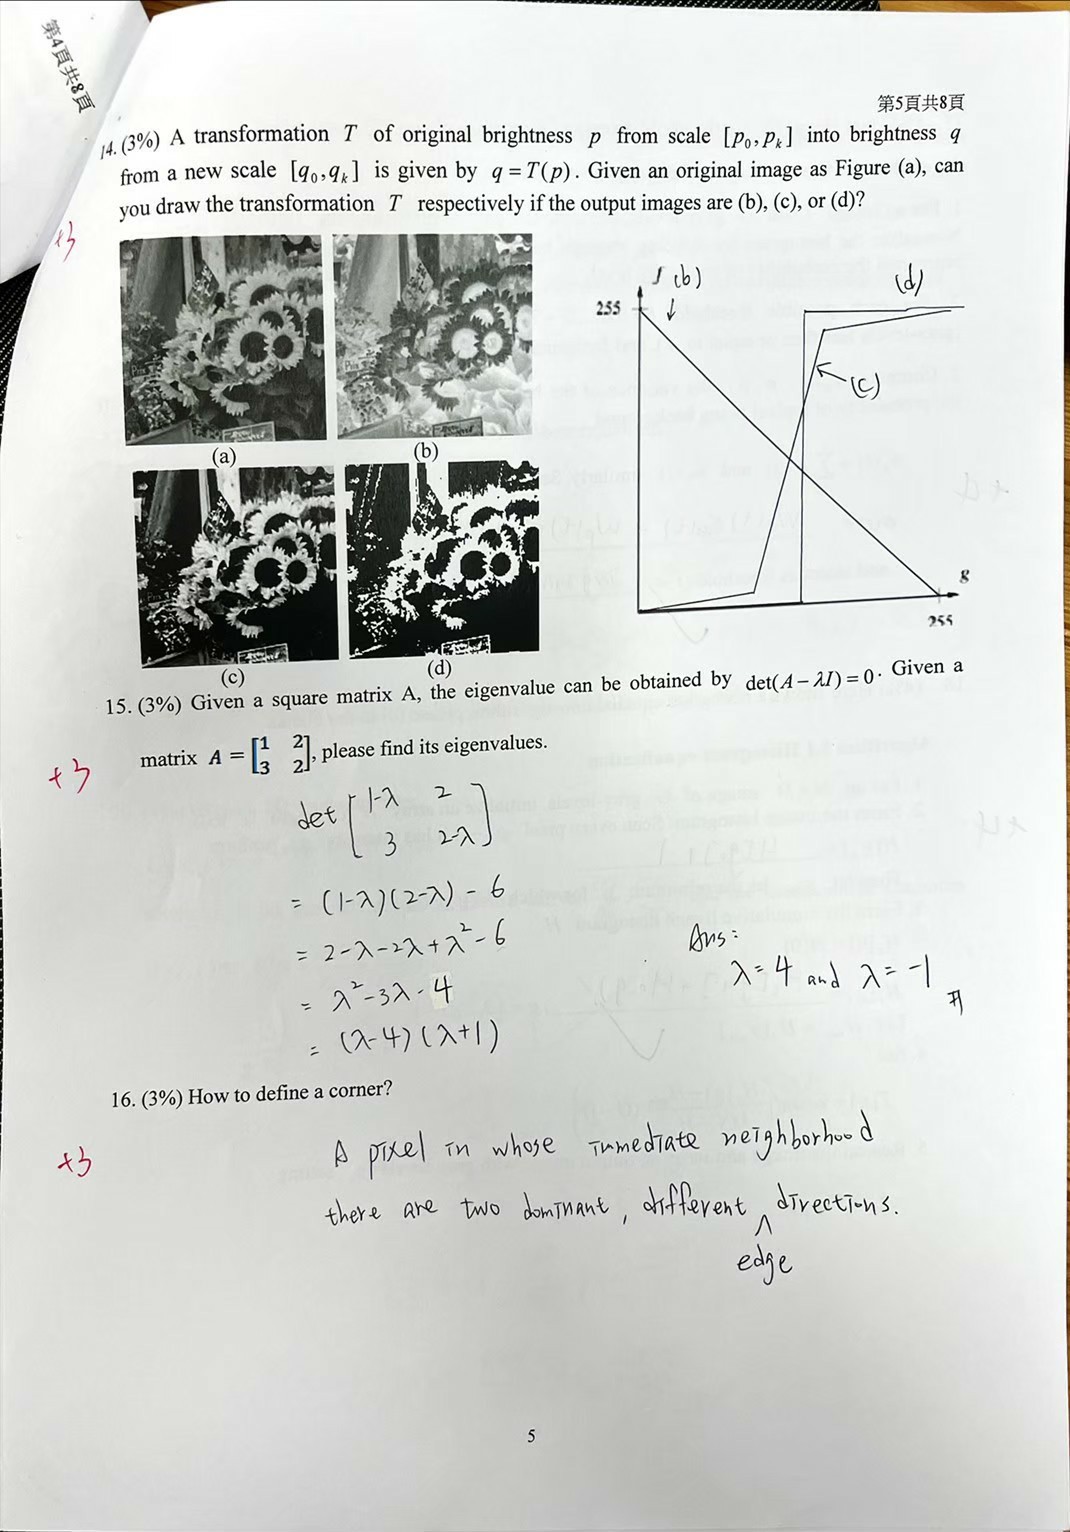 第4頁共8頁
第5頁共8頁
14. (3%) A transformation T of original brightness p from scale [p₀, pₖ] into brightness q
from a new scale [q₀, qₖ] is given by q = T(p). Given an original image as Figure (a), can
you draw the transformation T respectively if the output images are (b), (c), or (d)?
+3
(a)
(b)
(c)
(d)
f (b)
255
(d)
(c)
g
255
15. (3%) Given a square matrix A, the eigenvalue can be obtained by det(A − λI) = 0. Given a
matrix A = [1 2
3 2], please find its eigenvalues.
+3
det [ 1-λ 2
3 2-λ ]
= (1-λ)(2-λ) - 6
= 2-λ-2λ+λ²-6
= λ²-3λ-4
= (λ-4)(λ+1)
Ans:
λ=4 and λ=-1
#
16. (3%) How to define a corner?
+3
A pixel in whose immediate neighborhood
there are two dominant, different edge directions.
5